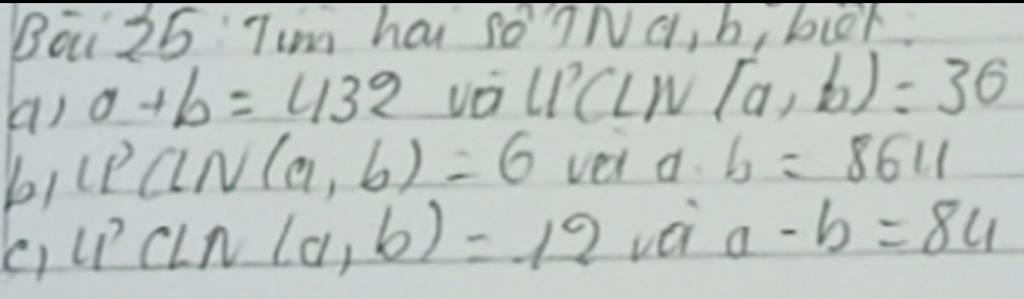 Bài 25: Tìm hai số TN a, b, biết:
a) a + b = 432 và ƯCLN (a, b) = 36
b) ƯCLN (a, b) = 6 và a . b = 864
c) ƯCLN (a, b) = 12 và a - b = 84